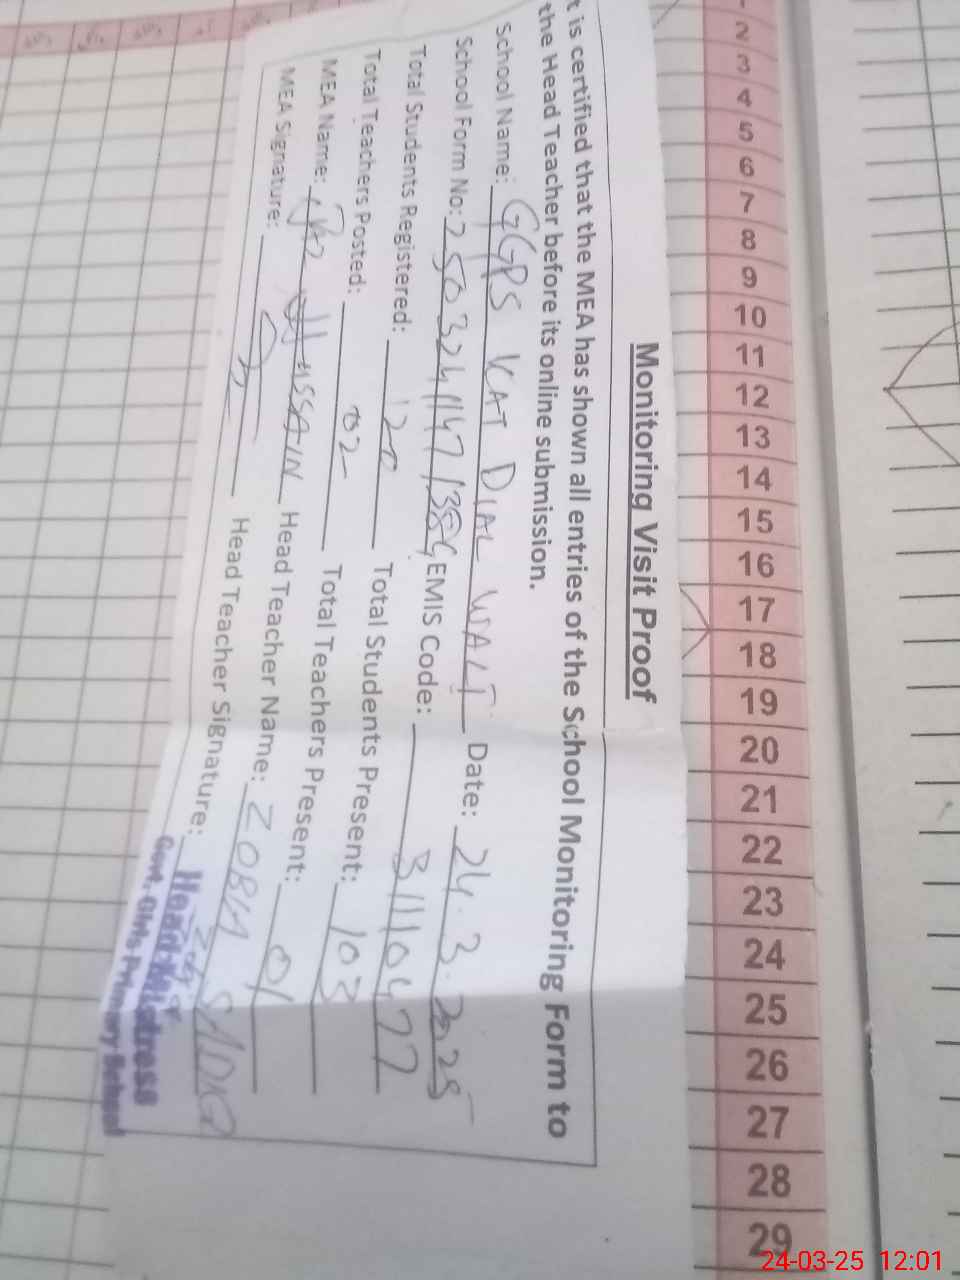 Monitoring Visit Proof
t is certified that the MEA has shown all entries of the School Monitoring Form to
the Head Teacher before its online submission.
School Name: GGPS KAT DIAL WALI Date: 24.3.2025
School Form No: EMIS Code: 31110477
Total Students Registered: Total Students Present: 103
Total Teachers Posted: 02 Total Teachers Present: 01
MEA Name: HUSSAIN Head Teacher Name: ZOBIA SADIQ
MEA Signature: Head Teacher Signature:
Head Mistress
Govt. Girls Primary School
2
3
4
5
6
7
8
9
10
11
12
13
14
15
16
17
18
19
20
21
22
23
24
25
26
27
28
29
24-03-25 12:01